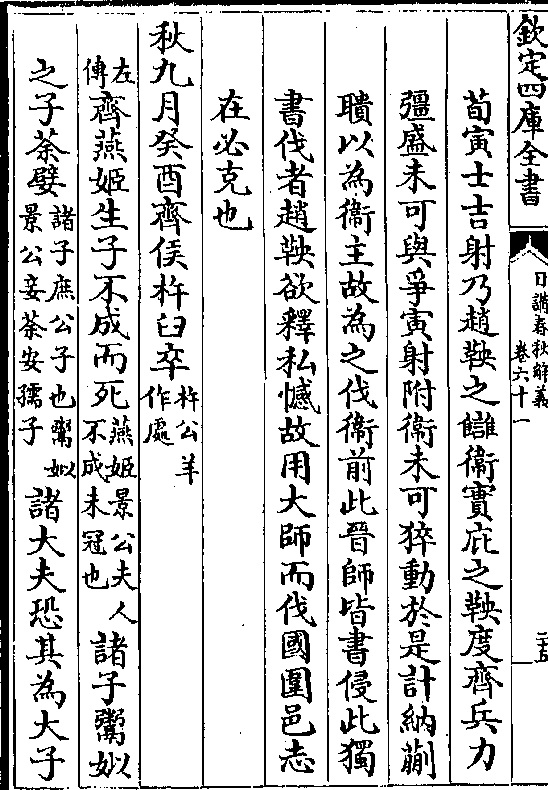 欽定四庫全書
日講春秋解義
卷六十一
二十五
荀寅士吉射乃趙鞅之讎衞實庇之鞅度齊兵力
彊盛未可與爭寅射附衞未可猝動於是計納蒯
聵以為衞主故為之伐衞前此晉師皆書侵此獨
書伐者趙鞅欲釋私憾故用大師而伐國圍邑志
在必克也
秋九月癸酉齊侯杵臼卒杵公羊作處
左傳齊燕姬生子不成而死燕姬景公夫人不成未冠也諸子鬻姒
之子荼嬖諸子庶公子也鬻姒景公妾荼安孺子諸大夫恐其為大子